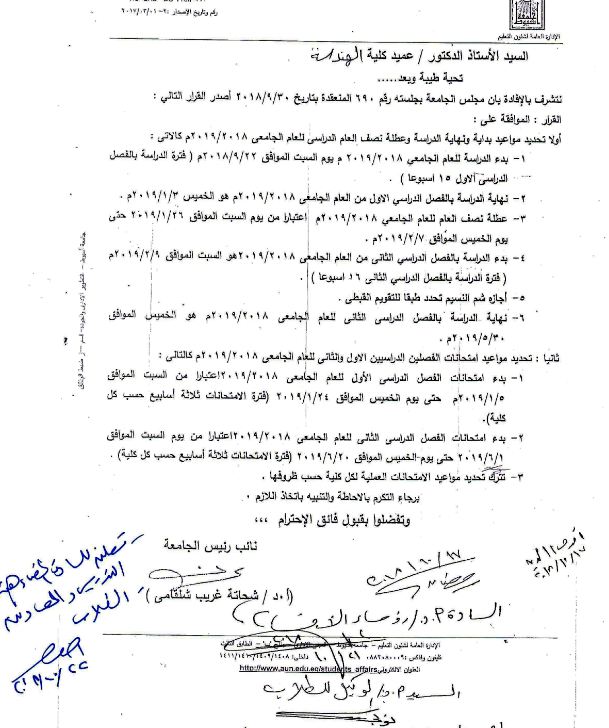 رقم وتاريخ الإصدار :٢- ٢٠١٧/٠٣/٠١
الإدارة العامة لشئون التعليم
السيد الأستاذ الدكتور / عميد كلية الهندسة
تحية طيبة وبعد.....
نتشرف بالإفادة بان مجلس الجامعة بجلسته رقم ٦٩٠ المنعقدة بتاريخ ٢٠١٨/٩/٣٠ أصدر القرار التالي :
القرار : الموافقة على :
أولا تحديد مواعيد بداية ونهاية الدراسة وعطلة نصف العام الدراسى للعام الجامعى ٢٠١٩/٢٠١٨م كالاتى :
١- بدء الدراسة للعام الجامعي ٢٠١٩/٢٠١٨ م يوم السبت الموافق ٢٠١٨/٩/٢٢م ( فترة الدراسة بالفصل
الدراسى الاول ١٥ اسبوعا ) .
٢- نهاية الدراسة بالفصل الدراسي الاول من العام الجامعى ٢٠١٩/٢٠١٨م هو الخميس ٢٠١٩/١/٣م .
٣- عطلة نصف العام للعام الجامعي ٢٠١٩/٢٠١٨م اعتبارا من يوم السبت الموافق ٢٠١٩/١/٢٦ حتى
يوم الخميس الموافق ٢٠١٩/٢/٧م .
٤- بدء الدراسة بالفصل الدراسي الثانى من العام الجامعى ٢٠١٩/٢٠١٨هو السبت الموافق ٢٠١٩/٢/٩م
( فترة الدراسة بالفصل الدراسي الثانى ١٦ اسبوعا ) .
٥- أجازه شم النسيم تحدد طبقا للتقويم القبطى .
٦- نهاية الدراسة بالفصل الدراسى الثانى للعام الجامعى ٢٠١٩/٢٠١٨م هو الخميس الموافق
٢٠١٩/٥/٣٠م .
ثانيا : تحديد مواعيد امتحانات الفصلين الدراسيين الاول والثانى للعام الجامعى ٢٠١٩/٢٠١٨م كالتالى :
١- بدء امتحانات الفصل الدراسى الأول للعام الجامعى ٢٠١٩/٢٠١٨اعتبارا من السبت الموافق
٢٠١٩/١/٥م حتى يوم الخميس الموافق ٢٠١٩/١/٢٤ (فترة الامتحانات ثلاثة أسابيع حسب كل
كلية).
٢- بدء امتحانات الفصل الدراسى الثانى للعام الجامعى ٢٠١٩/٢٠١٨اعتبارا من يوم السبت الموافق
٢٠١٩/٦/١ حتى يوم الخميس الموافق ٢٠١٩/٦/٢٠ (فترة الامتحانات ثلاثة أسابيع حسب كل كلية) .
٣- تترك تحديد مواعيد الامتحانات العملية لكل كلية حسب ظروفها .
برجاء التكرم بالاحاطة والتنبيه باتخاذ اللازم ،
وتفضلوا بقبول فائق الإحترام ،،،
نائب رئيس الجامعة
(أ.د/ شحاتة غريب شلقامى )
السادة أ.د/ رؤساء الأقسام
الإدارة العامة لشئون التعليم -
http://www.aun.edu.eg/students_affairs
السيد أ.د/ وكيل الطلاب